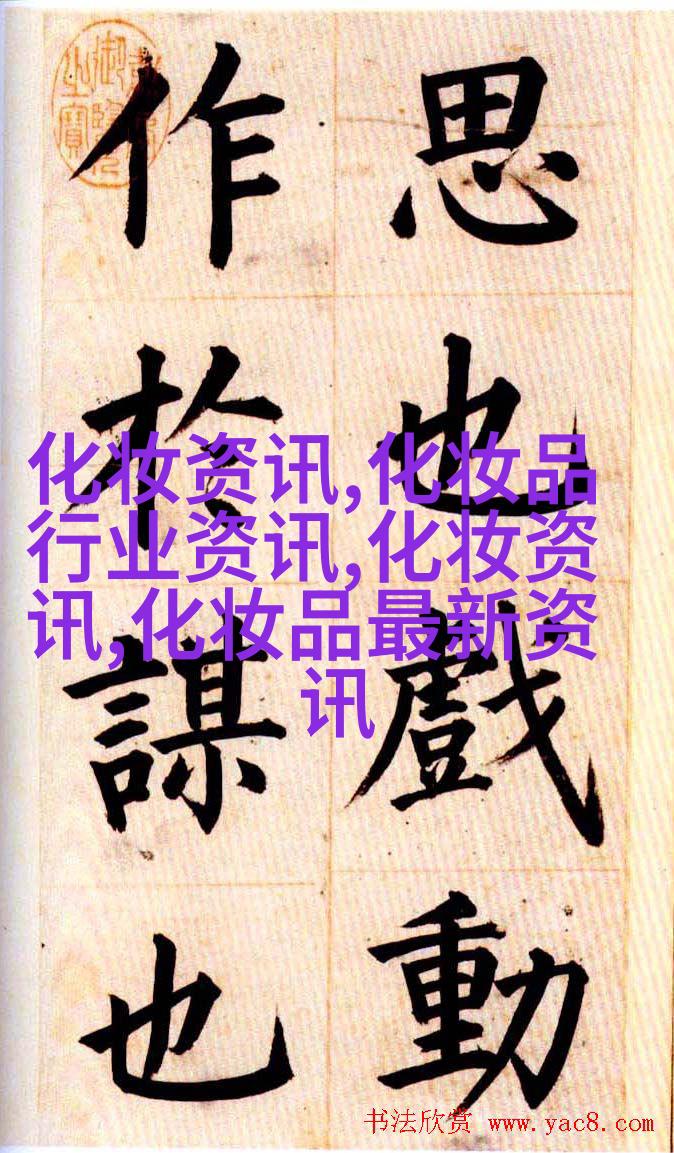 思也戲動
作於謀也
化妆资讯,化妆品
行业资讯,化妆资
讯,化妆品最新资
讯
书法欣赏 www.yac8.com